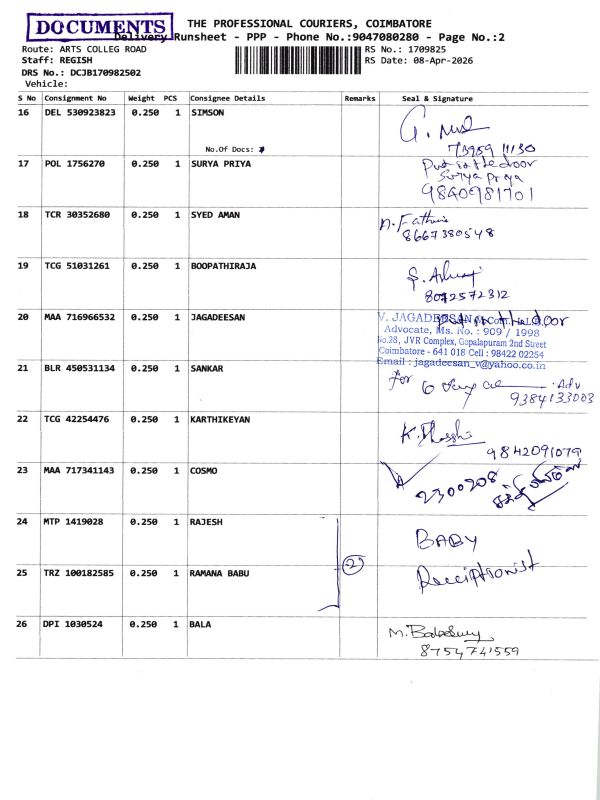 DOCUMENTS
THE PROFESSIONAL COURIERS, COIMBATORE
Delivery Runsheet - PPP - Phone No.:9047080280 - Page No.:2
Route: ARTS COLLEG ROAD
RS No.: 1709825
Staff: REGISH
RS Date: 08-Apr-2026
DRS No.: DCJB170982502
Vehicle:
S No Consignment No Weight PCS Consignee Details Remarks Seal & Signature
16 DEL 530923823 0.250 1 SIMSON
No.Of Docs:
73959 11130
17 POL 1756270 0.250 1 SURYA PRIYA
Put in the door
Surya priya
9840981701
18 TCR 30352680 0.250 1 SYED AMAN
8667380548
19 TCG 51031261 0.250 1 BOOPATHIRAJA
8072572312
20 MAA 716966532 1 0.250 JAGADEESAN
door
V. JAGADEESAN
Advocate, Ms. No. : 909 / 1998
No.28, JVR Complex, Gopalapuram 2nd Street
Coimbatore - 641 018 Cell : 98422 02254
Email : jagadeesan_v@yahoo.co.in
21 BLR 450531134 0.250 1 SANKAR
for Adv
9384133003
22 TCG 42254476 0.250 1 KARTHIKEYAN
9842091079
23 MAA 717341143 0.250 1 COSMO
2300208
24 MTP 1419028 0.250 1 RAJESH
BABY
25 TRZ 100182585 0.250 1 RAMANA BABU
2
Receiptionist
26 DPI 1030524 0.250 1 BALA
8754741559